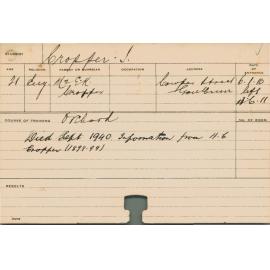 STUDENT
Cropper. J.
AGE RELIGION PARENT OR GUARDIAN OCCUPATION ADDRESS DATE OF ENTRANCE
21 Eng Mr E.K. Cowper Street 6.7.10
Cropper Goulburn left
16.6.11
COURSE OF TRAINING Orchard No. OF ROOM
Died Sept 1940. Information from H.G.
Cropper (1897-99)
RESULTS
DATE